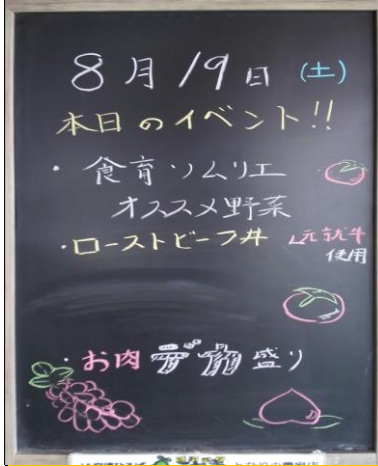 8月19日(土)
本日のイベント!!
・食育ソムリエ
オススメ野菜
・ローストビーフ丼 元就牛
使用
・お肉デカ盛り